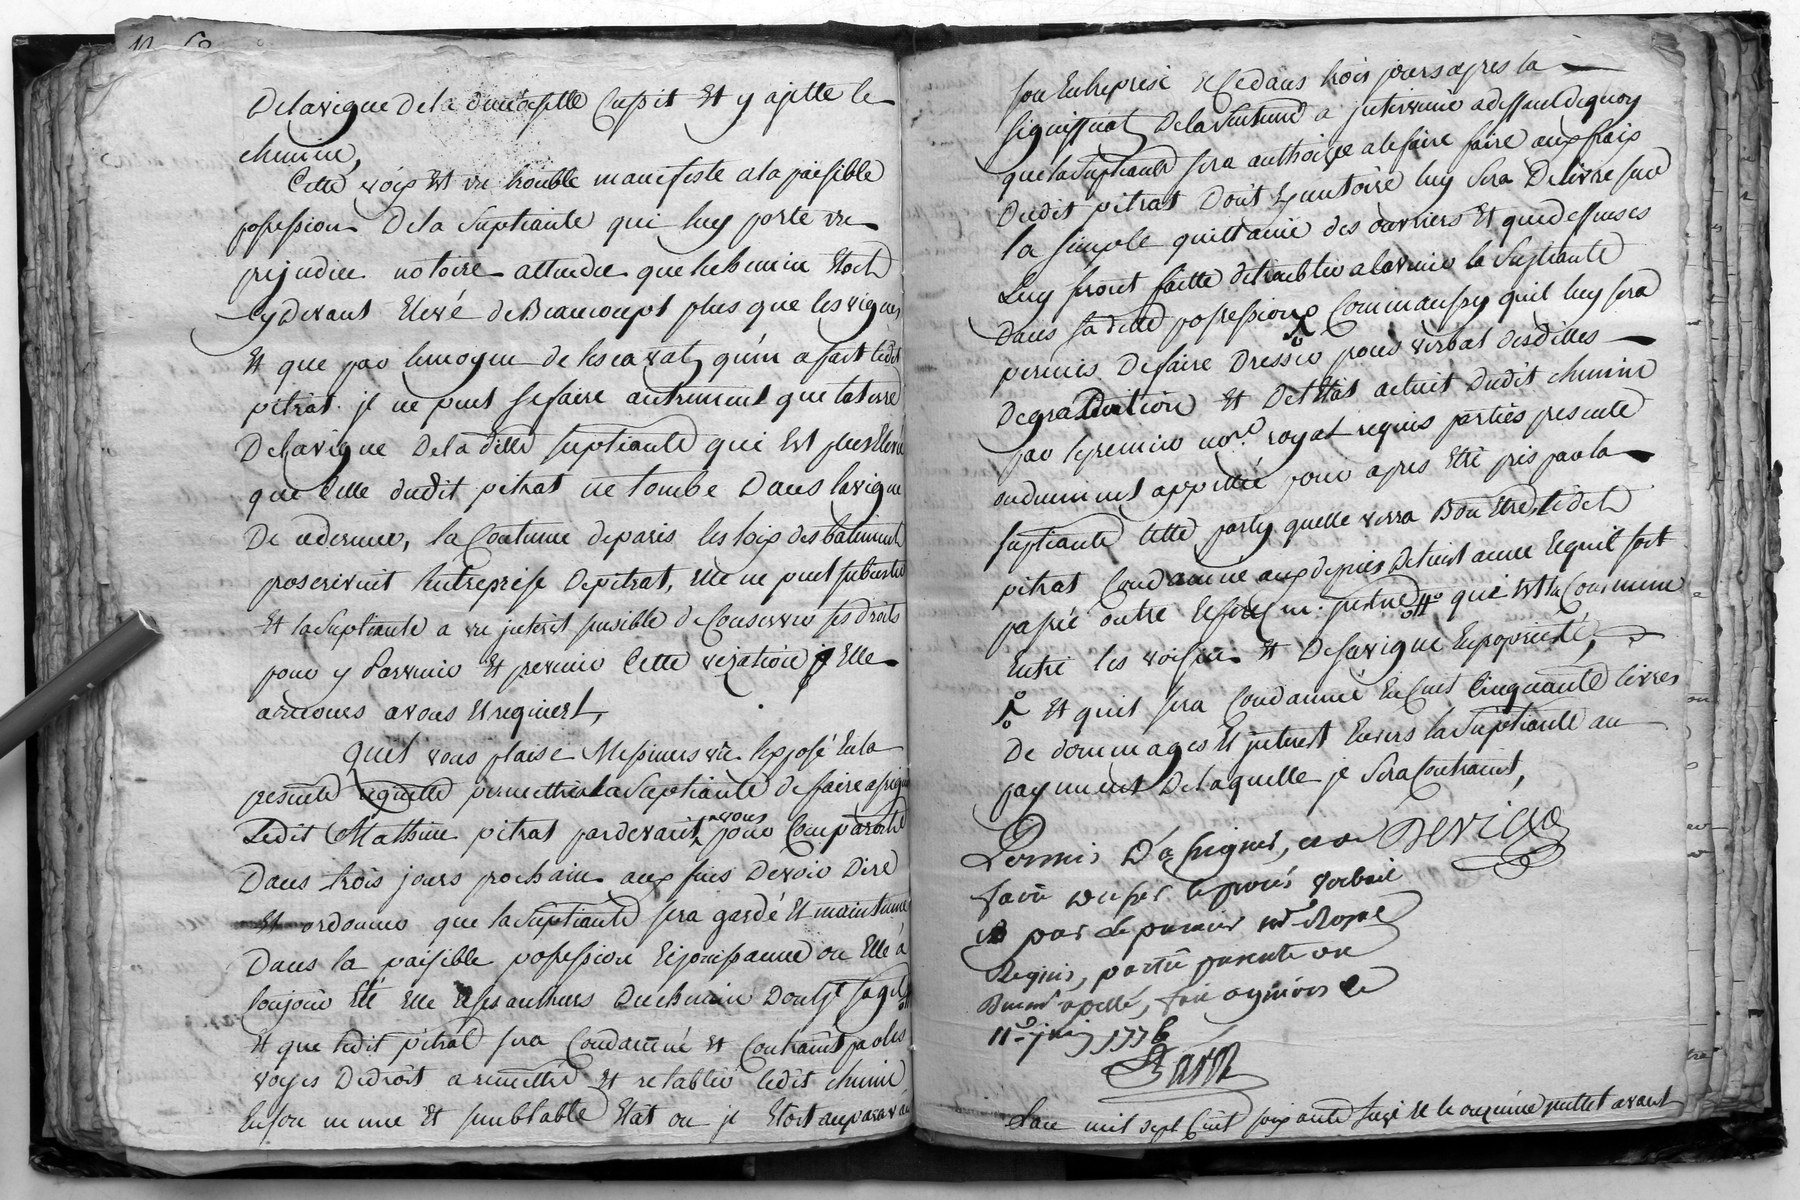 Delavigne de la
chemine,
Cette voix Est un trouble manifeste ala paisible
possession Dela Supliante qui luy porte un
prejudice notoire attendu que lechemin Etoit
cydevant Elevé deBeaucoupt plus que les vignes
Et que par lemoyen de qu'en a fait ledit
pitrat. il ne peut sefaire autrement que laterre
Delavigne Deladitte supliante qui Est plus Elevée
que Celle dudit pitrat ne tombe Dans lavigne
De cedernier, la Coutume deparis les loix des batiments
proscrivent lentreprise Depitrat, Elle ne peut subsister
Et la Supliante a un interest sensible de Conserver ses droits
pour y Parvenir Et prevenir Cette vexation Elle
arecours avous Etrequiert,
quil vous plaise Messieurs vu lexposé Enla
presente requette permettre ala Supliante de faire assigner
Ledit Mathieu pitrat pardevant vous pour Comparoitre
Dans trois jours prochain aux fins Devoir Dire
Et ordonner que la Supliante sera gardé Et maintenue
Dans la paisible possession Et jouissance ou Elle a
toujour Eté Elle Et ses autheurs Duchemin Dont il sagit
Et que ledit pitrat sera Condamné Et Contraint par les
voyes Dedroit a remettre Et retablir ledit chemin
Enson meme Et semblable Etat ou il Etoit auparavant
son Entreprise Et Cedans trois jours apres la
signiffication Dela Sentence a intervenir adeffaut dequoy
que la Supliante sera authorizée a le faire faire aux frais
Dudit pitrat Dont Executoire luy sera Delivré sur
la simple quittance des ouvriers Et que deffenses
Luy seront faitte detroubler alavenir la Supliante
Dans sa ditte possession Comm'aussy quil luy sera
permis Defaire Dresser procès verbal desdittes
Degradation Et De l'Etat actuel dudit chemin
par lepremier no.re royal requis parties presente
ou duement appellée pour apres Etre pris par la
supliante telle party quelle verra Bon Etre, ledit
pitrat Condamné aux depens De linstance Et quil soit
passé outre qui Est la Commune
Entre les voisins Et De savigne Enproprieté,
Et quil sera Condamné En Cent Cinquante livres
De dommages Et interest Envers la Supliante au
payement Delaquelle il sera Contraint,
Permis D'assigner, DEVILLE
faire dresser le procés verbail
par le premier no.re Royal
Requis, partie presente ou
Duem.t apellé, fait
11.e juin 1776
L'an mil sept Cent soixante Seize Et le onzieme juillet avant